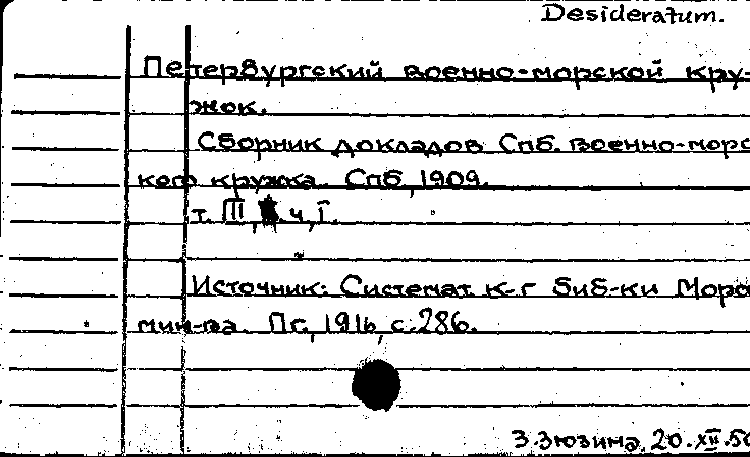 Desideratum.
Петербургский военно-морской кру-
жок.
Сборник докладов Спб. военно-морс
кого кружка. Спб, 1909.
т. III, ч, I.
Источник: Системат. к-г биб-ки Морс
мин-ва. Пг., 1916, с. 286.
З. Зюзина, 20.XII.50